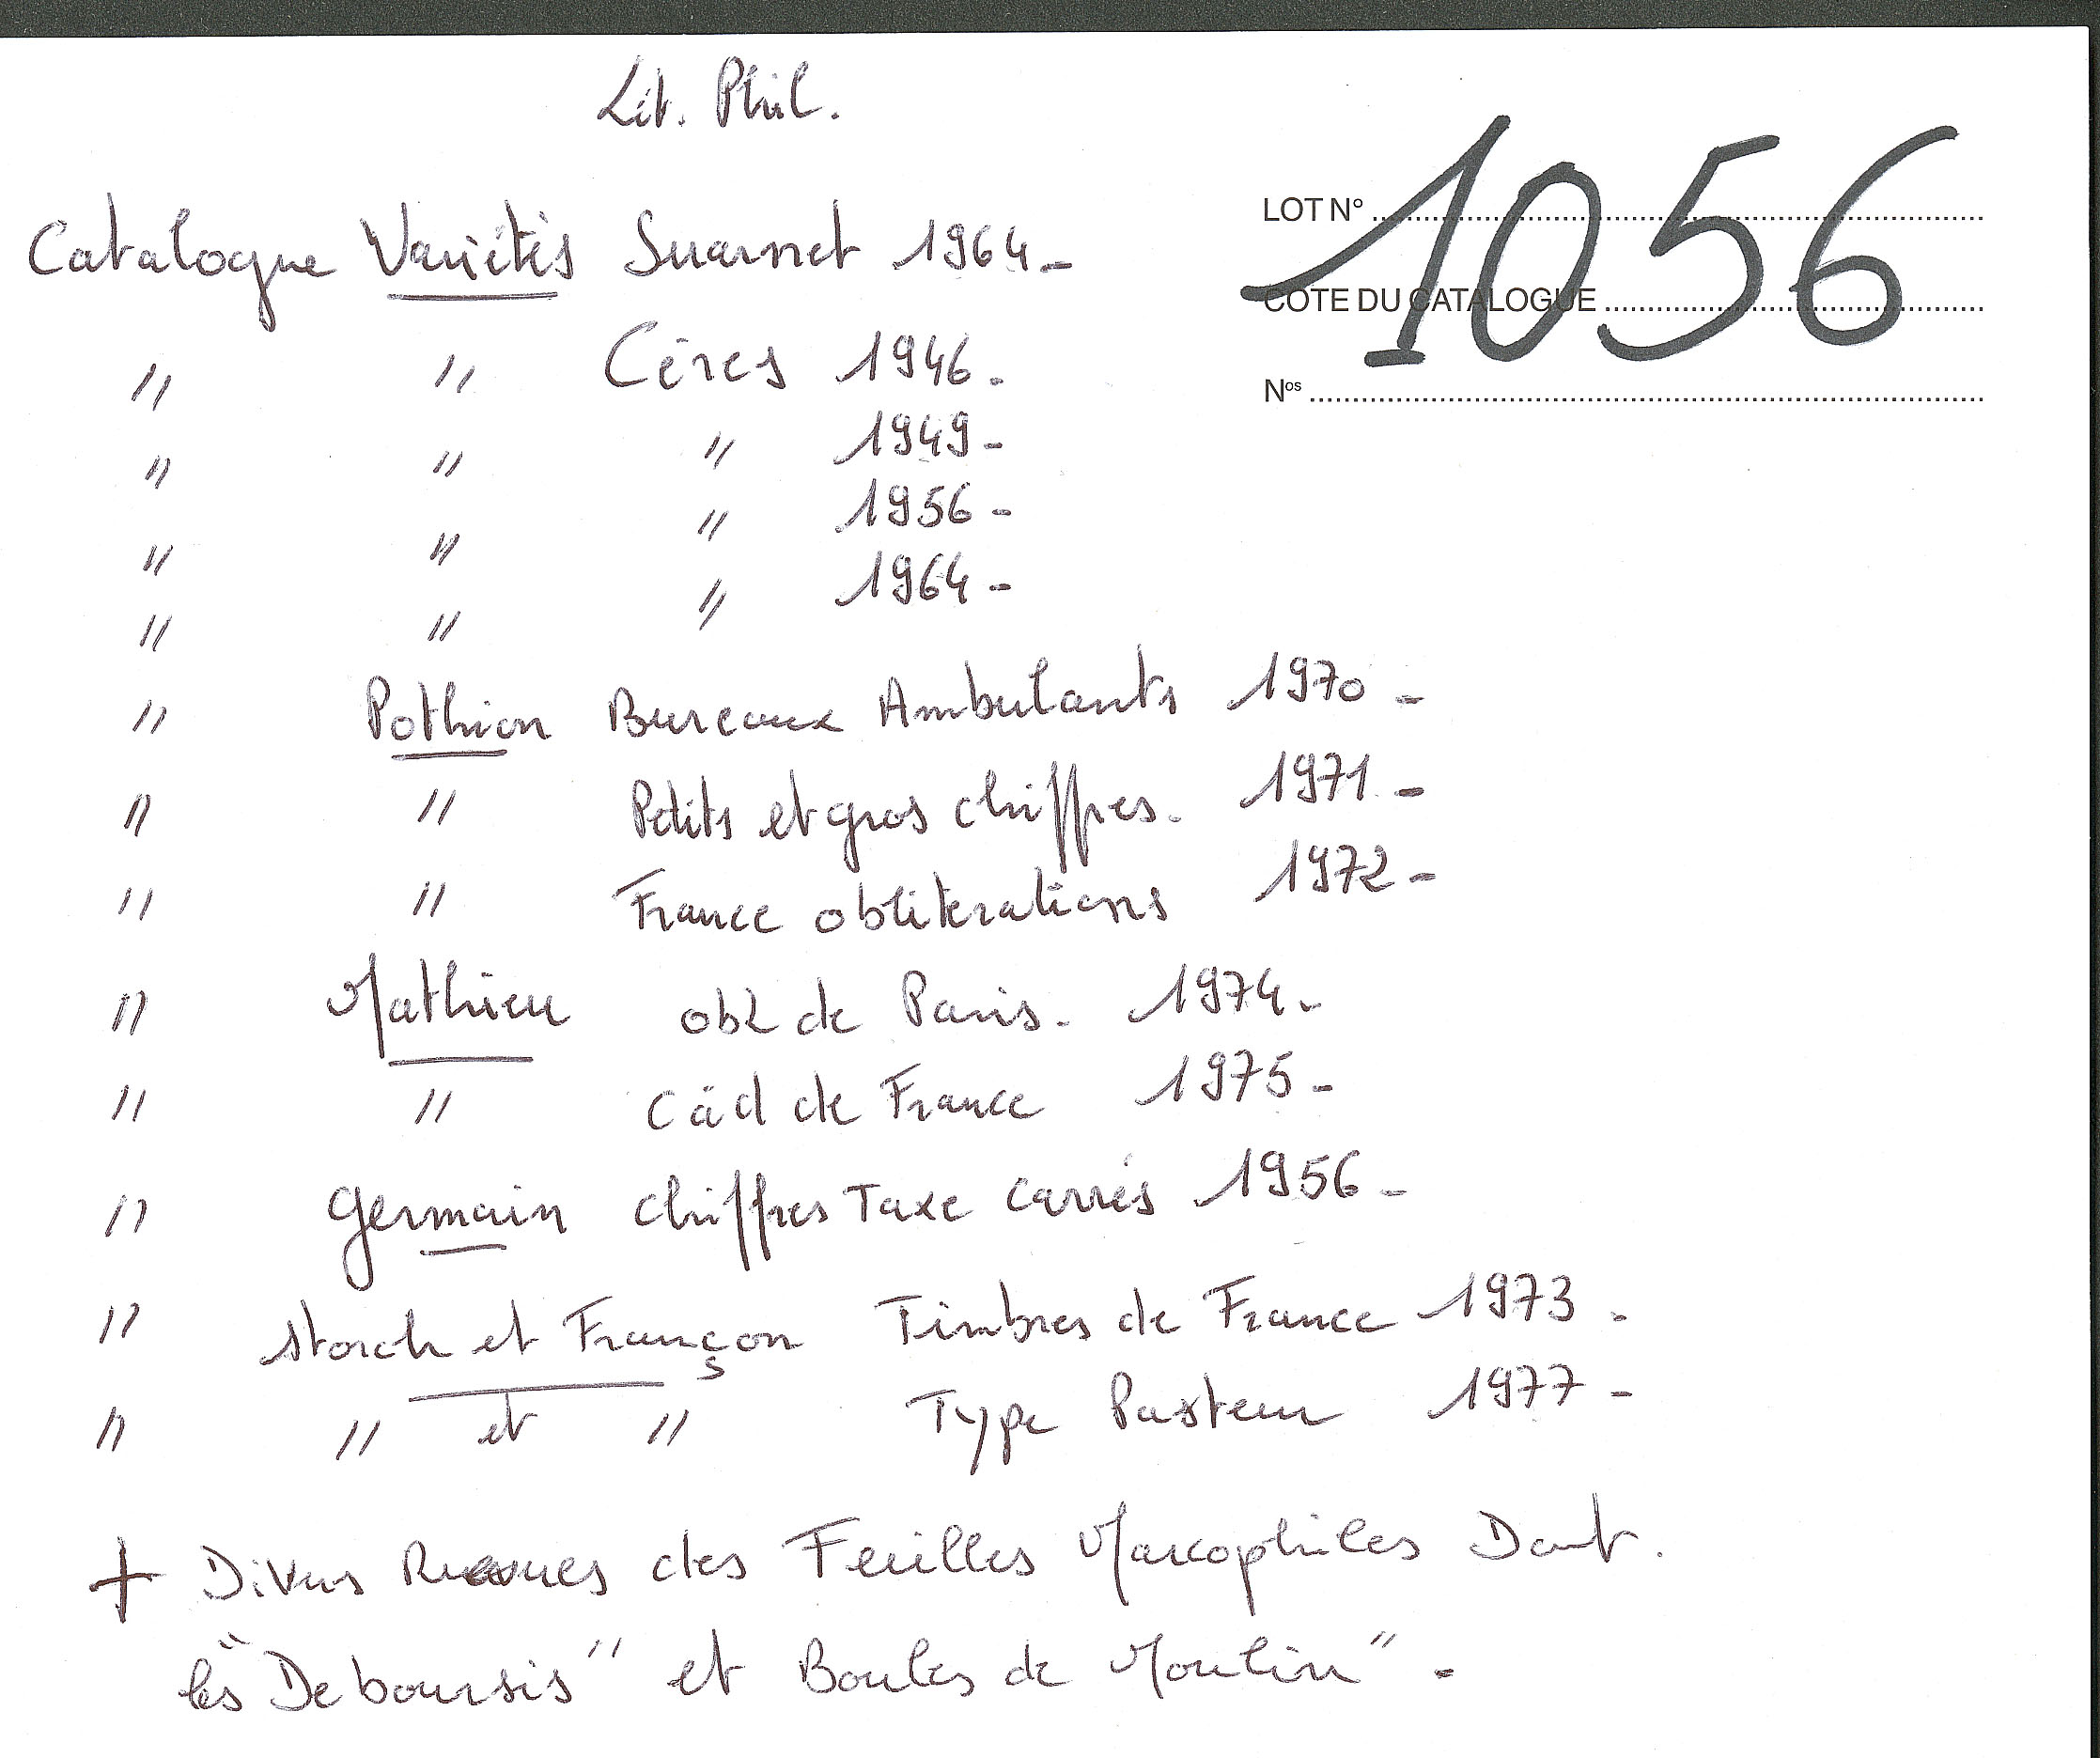 Lit. Phil.
LOT N° 1056
COTE DU CATALOGUE
Nos
Catalogue Variétés Suarnet 1964 -
" " Cérès 1946.
" " " 1949 -
" " " 1956 -
" " " 1964 -
" Pothion Bureaux Ambulants 1970 -
" " Petits et gros chiffres. 1971 -
" " France oblitérations 1972 -
" Mathieu obl de Paris. 1974 -
" " Càd de France 1975 -
" Germain chiffres Taxe carrés 1956 -
" Storch et Françon Timbres de France 1973 -
" " et " Type Pasteur 1977 -
+ Divers Revues des Feuilles Marcophiles Dont.
les "Deboursis" et Boules de Moulin" -